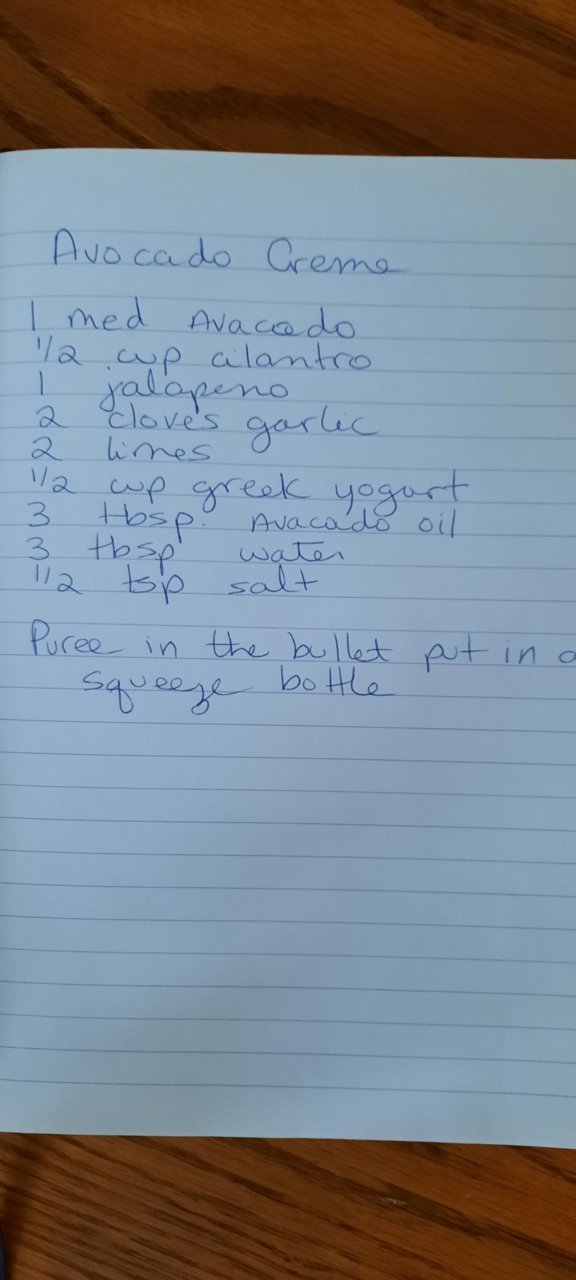 Avocado Creme
1 med Avacado
1/2 cup cilantro
1 jalapeno
2 cloves garlic
2 limes
1/2 cup greek yogurt
3 tbsp. Avacado oil
3 tbsp water
1/2 tsp salt
Puree in the bullet put in a
squeeze bottle